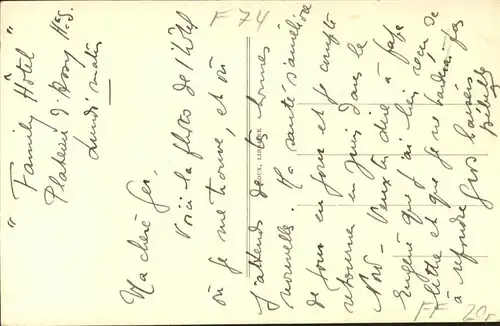 " Family Hôtel "
Plateau d'Assy Hte S.
Lundi matin
Ma chère Ger,
Voici la photos de l'hôtel
où je me trouve, et où
j'attends de tes bonnes
nouvelles. Ma santé s'améliore
de jour en jour et je compte
retourner en Juin dans le
Nord - Veux-tu dire à
Eugène que j'ai bien reçu de
lettre et que je ne tarderai pas
à répondre. Gros baisers
F 74
FF 20F